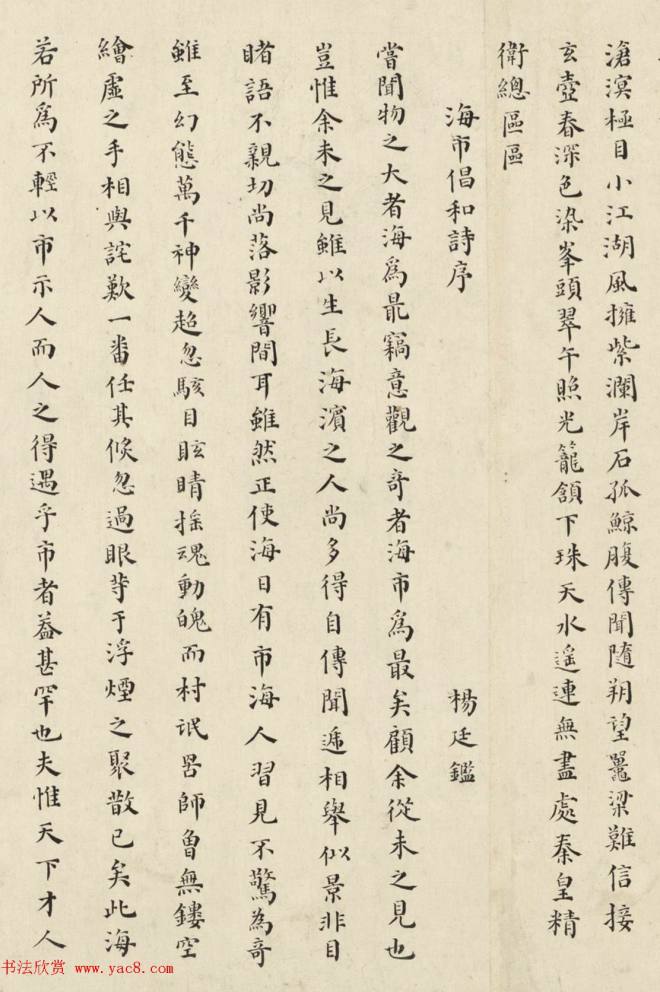 滄溟極目小江湖風擁紫瀾岸石孤鯨腹傳聞隨朔望鼉梁難信接
玄壺春深色染峯頭翠午照光籠頷下珠天水遥連無盡處秦皇精
衛總區區
海市倡和詩序 楊廷鑑
嘗聞物之大者海爲最竊意觀之奇者海市爲最矣顧余從未之見也
豈惟余未之見雖以生長海濱之人尚多得自傳聞遞相舉似景非目
睹語不親切尚落影響間耳雖然正使海日有市海人習見不驚為奇
雖至幻態萬千神變超忽駭目眩睛摇魂動魄而村氓罟師曾無鏤空
繪虛之手相與詫歎一番任其倏忽過眼等于浮煙之聚散已矣此海
若所爲不輕以市示人而人之得遇乎市者葢甚罕也夫惟天下才人
书法欣赏 www.yac8.com